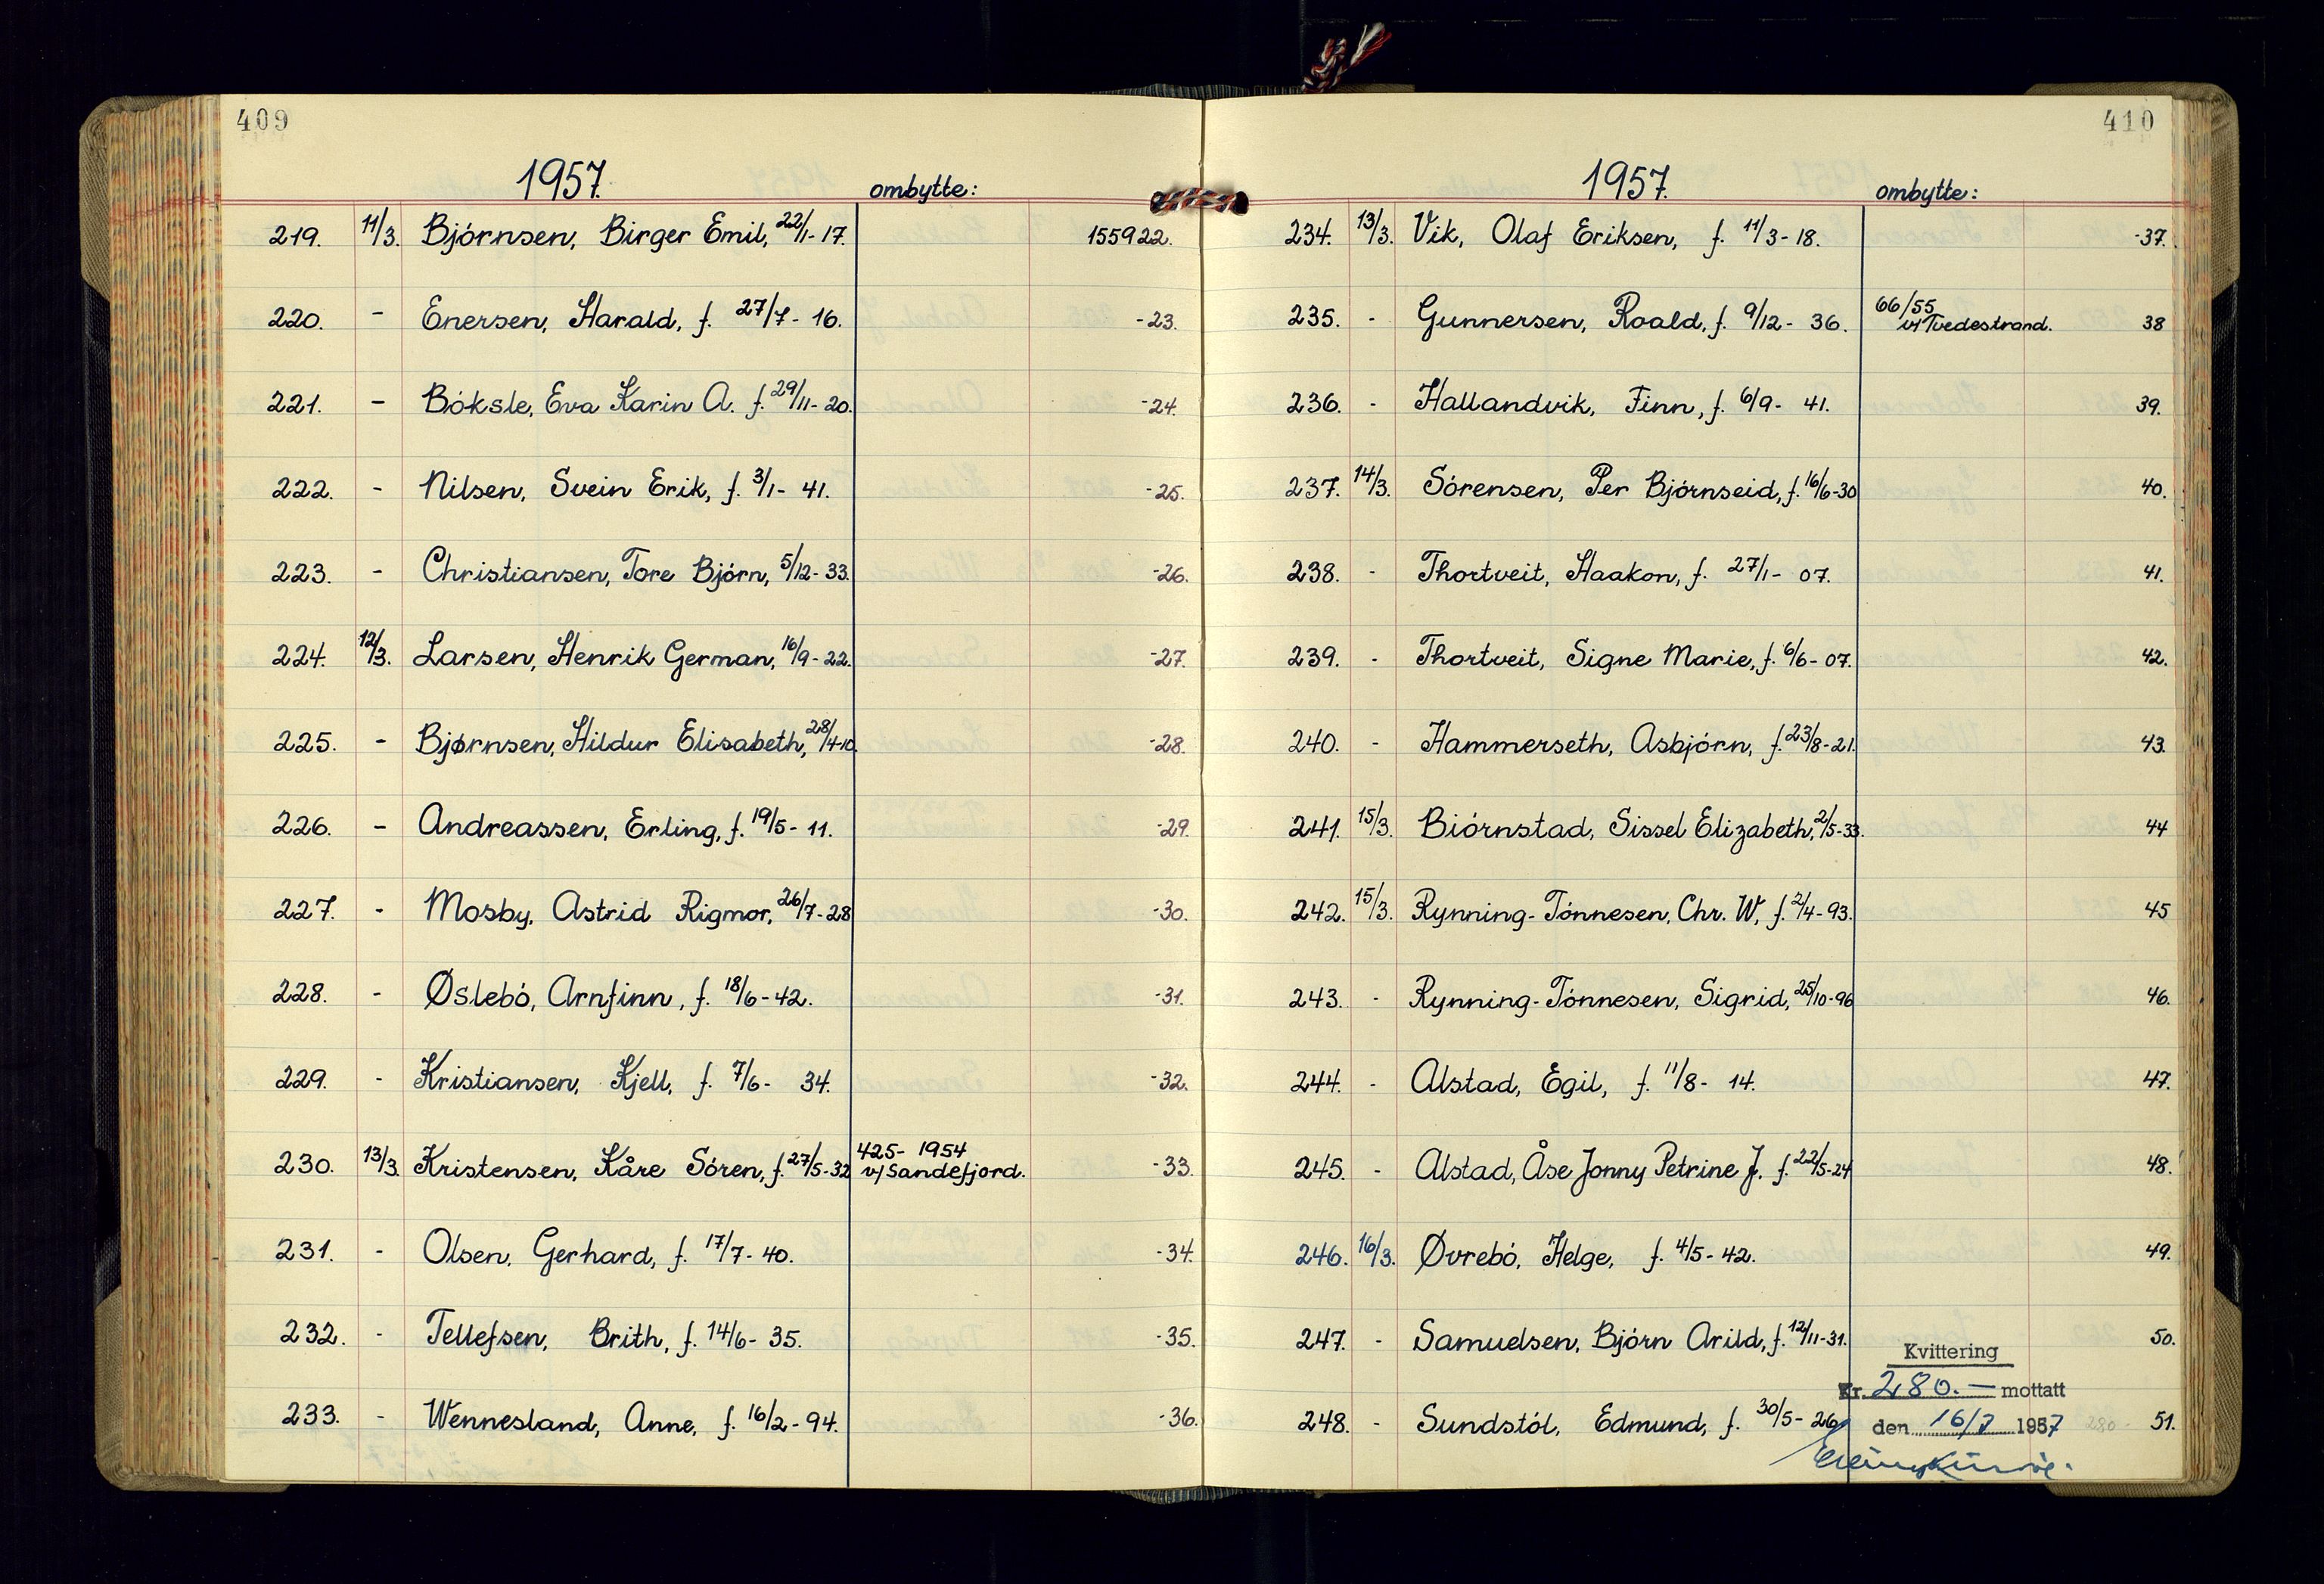 409
1957.
ombytte:
219. 11/3. Bjórnsen, Birger Emil, 22/1-17. 155922.
220. - Enersen, Harald, f. 27/7-16. -23.
221. - Bóksle, Eva Karin A. f. 29/11-20. -24.
222. - Nilsen, Svein Erik, f. 3/1-41. -25.
223. - Christiansen, Tore Bjórn, 5/12-33. -26.
224. 12/3. Larsen, Henrik German, 16/9-22. -27.
225. - Bjørnsen, Hildur Elisabeth, 28/4-10. -28.
226. - Andreassen, Erling, f. 19/5-11. -29.
227. - Mosby, Astrid Rigmor, 26/7-28 -30.
228. - Øslebó, Arnfinn, f. 18/6-42. -31.
229. - Kristiansen, Kjell, f. 7/6-34. -32.
230. 13/3. Kristensen, Kåre Sóren, f. 27/5-32 425-1954 -33.
v/Sandefjord.
231. - Olsen, Gerhard, f. 17/7-40. -34.
232. - Tellefsen, Brith, f. 14/6-35. -35.
233. - Wennesland, Anne, f. 16/2-94. -36.
410
1957.
ombytte:
234. 13/3. Vik, Olaf Eriksen, f. 11/3-18. -37.
235. - Gunnersen, Roald, f. 9/12-36. 66/55 38
v/Tvedestrand.
236. - Hallandvik, Finn, f. 6/9-41. 39.
237. 14/3. Sórensen, Per Bjórnseid, f. 16/6-30 40.
238. - Thortveit, Haakon, f. 27/1-07. 41.
239. - Thortveit, Signe Marie, f. 6/6-07. 42.
240. - Hammerseth, Asbjórn, f. 23/8-21. 43.
241. 15/3. Biórnstad, Sissel Elizabeth, 2/5-33. 44
242. 15/3. Rynning-Tónnesen, Chr. W, f. 2/4-93. 45
243. - Rynning-Tónnesen, Sigrid, 25/10-96 46.
244. - Alstad, Egil, f. 11/8-14. 47.
245. - Alstad, Åse Jonny Petrine J. f. 22/5-24 48.
246. 16/3. Øvrebó, Helge, f. 4/5-42. 49.
247. - Samuelsen, Bjórn Arild, f. 12/11-31. 50.
248. - Sundstól, Edmund, f. 30/5-26 51.
Kvittering
Kr. 280.- mottatt
den 16/7 1957 280